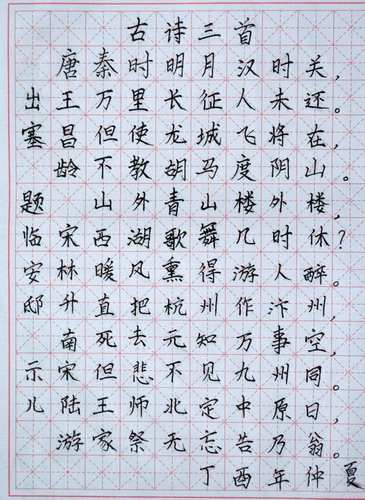 古诗三首
唐秦时明月汉时关，
出王万里长征人未还。
塞昌但使龙城飞将在，
龄不教胡马度阴山。
题山外青山楼外楼，
临宋西湖歌舞几时休？
安林暖风熏得游人醉。
邸升直把杭州作汴州，
南死去元知万事空。
示宋但悲不见九州同。
儿陆王师北定中原日，
游家祭无忘告乃翁。
丁酉年仲夏